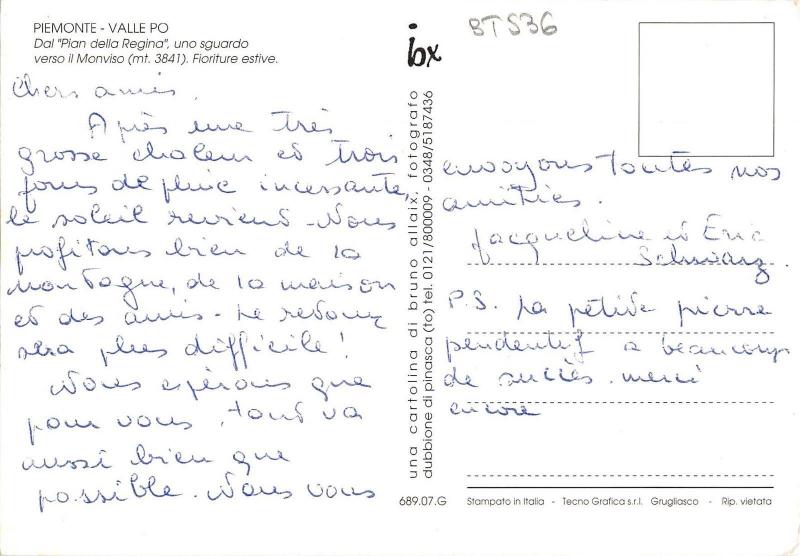 PIEMONTE - VALLE PO
Dal "Pian della Regina", uno sguardo
verso il Monviso (mt. 3841). Fioriture estive.
Chers amis,
Après une très
grosse chaleur et trois
jours de pluie incessante,
le soleil revient. Nous
profitons bien de la
montagne, de la maison
et des amis. Le retour
sera plus difficile !
Nous espérons que
pour vous, tout va
aussi bien que
possible. Nous vous
ibx
una cartolina di bruno allaix, fotografo
dubbione di pinasca (to) tel. 0121/800009 - 0348/5187436
BTS36
envoyons toutes nos
amitiés.
Jacqueline et Eric
Schwarz
P.S. La petite pierre
pendentif a beaucoup
de succès. merci
encore
689.07.G Stampato in Italia - Tecno Grafica s.r.l. Grugliasco - Rip. vietata